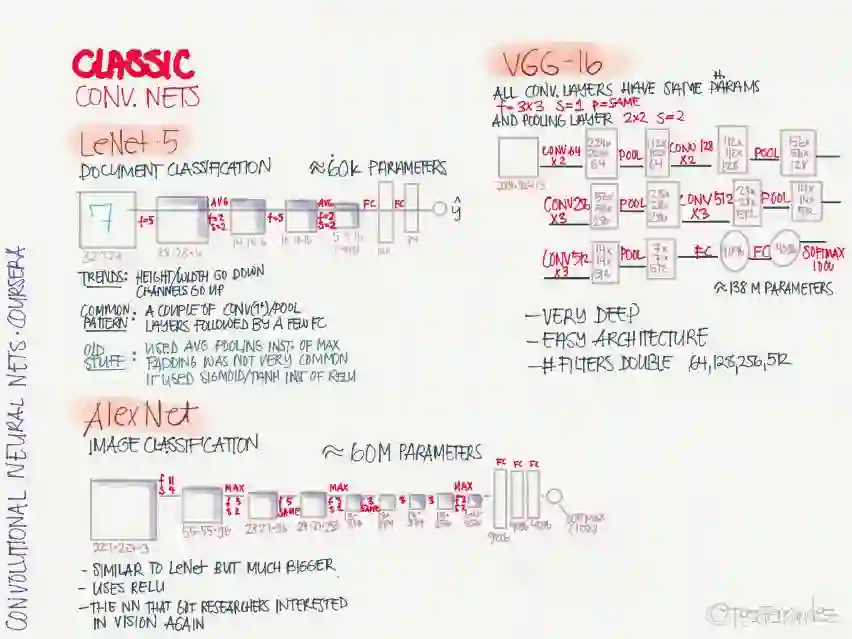 CLASSIC
CONV. NETS
LeNet-5
DOCUMENT CLASSIFICATION ≈60K PARAMETERS
7
f=5
AVG
f=2
S=2
f=5
AVG
f=2
S=2
FC
FC
ŷ
TRENDS: HEIGHT/WIDTH GO DOWN
CHANNELS GO UP
COMMON PATTERN: A COUPLE OF CONV(1+)/POOL
LAYERS FOLLOWED BY A FEW FC
OLD STUFF: USED AVG POOLING INST. OF MAX
PADDING WAS NOT VERY COMMON
IT USED SIGMOID/TANH INST OF RELU
AlexNet
IMAGE CLASSIFICATION ≈ 60M PARAMETERS
f 11
S 4
MAX
f 3
S 2
f 5
SAME
MAX
f 3
S 2
3
SAME
3
MAX
FC FC FC
55·55·96
SOFTMAX
- SIMILAR TO LeNet BUT MUCH BIGGER
- USES RELU
- THE NN THAT GOT RESEARCHERS INTERESTED
IN VISION AGAIN
VGG-16
ALL CONV. LAYERS HAVE SAME PARAMS
f=3x3 S=1 P=SAME
AND POOLING LAYER 2x2 S=2
CONV 64
x2
POOL
CONV 128
x2
POOL
CONV 256
x3
POOL
CONV 512
x3
POOL
CONV 512
x3
POOL
FC
FC
SOFTMAX
1000
≈138 M PARAMETERS
- VERY DEEP
- EASY ARCHITECTURE
- # FILTERS DOUBLE 64,128,256,512
CONVOLUTIONAL NEURAL NETS · COURSERA
©TessFerrandez